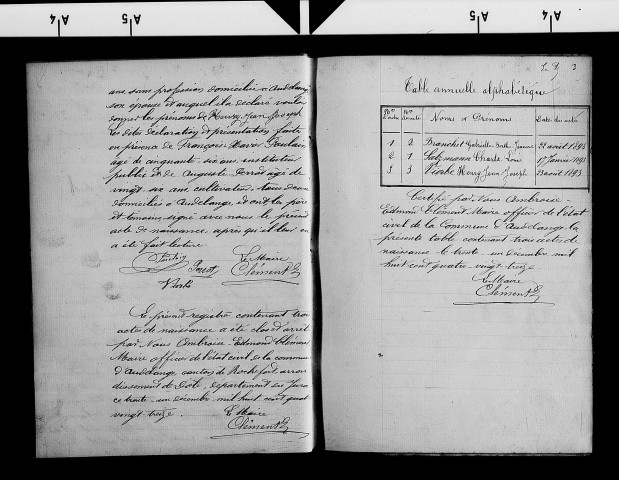 A 4
A 5
A 5
A 4
ans, sans profession domiciliée à Audelange
son épouse et auquel il a déclaré vouloir
donner les prénoms de Henry, Jean Joseph
Les dites déclaration et présentation faites
en présence de François Xavier Poulain
âgé de cinquante-six ans instituteur
public et de Auguste Perrot âgé de
vingt-six ans, cultivateur, tous deux
domiciliés à Audelange, et ont les père
et témoins, signé avec nous le présent
acte de naissance, après qu'il leur en
a été fait lecture
Le Maire
Clément E
Le présent registre contenant trois
actes de naissance a été clos et arrêté
par Nous Ambroise-Edmond Clément
Maire officier de l'état civil de la commune
d'Audelange, canton de Rochefort, arron-
dissement de Dôle, département du Jura
ce trente-un décembre mil huit cent quatre
vingt treize.
Le Maire
Clément E
3
Table annuelle alphabétique
Nos d'acte Nos Noms et Prénoms Date des actes
1 2 Branchet Gabrielle 1893
2 1 Salzmann Charles Louis 17 Janvier 1893
3 3 Henry Jean Joseph 23 août 1893
Certifié par Nous Ambroise-
Edmond Clément, Maire officier de l'état
civil de la Commune d'Audelange, la
présente table contenant trois actes
de naissance le trente-un décembre mil
huit cent quatre-vingt treize
Le Maire
Clément E